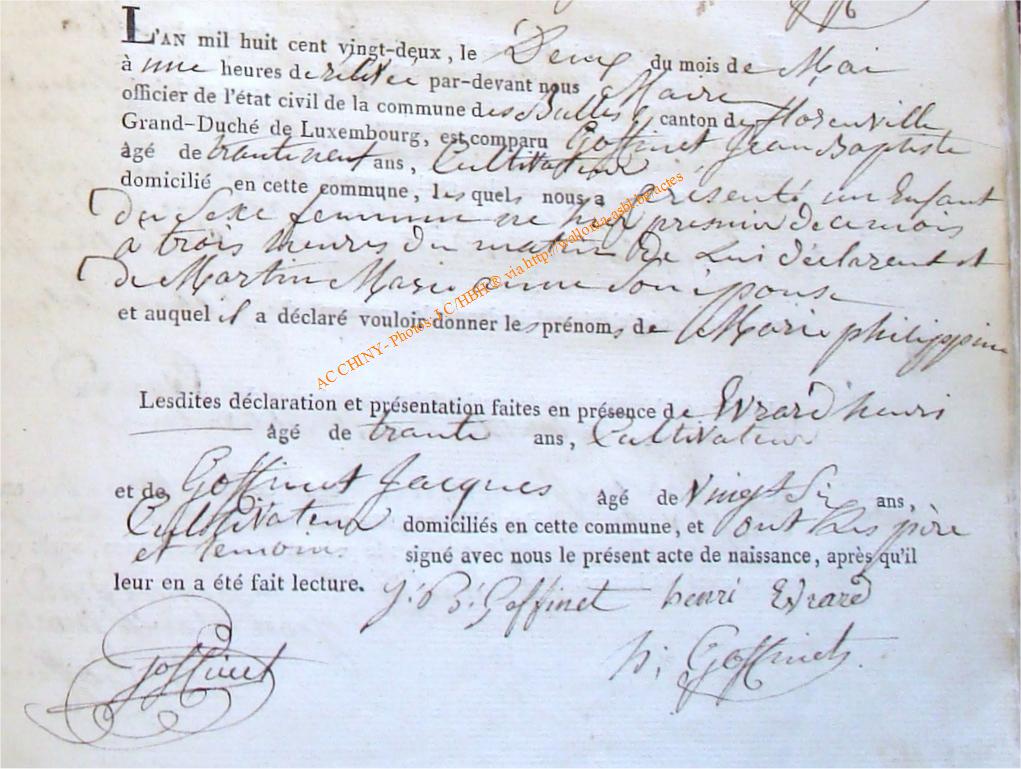 L'AN mil huit cent vingt-deux, le Deux du mois de Mai
à une heures de relevée par-devant nous Maire
officier de l'état civil de la commune des Bulles, canton de florenville
Grand-Duché de Luxembourg, est comparu Goffinet Jean Baptiste
âgé de trante neuf ans, Cultivateur
domicilié en cette commune, les quels nous a présenté un Enfant
du sexe feminin né hier premier de ce mois
a trois heures du matin De Lui déclarent et
de Martin Marie anne son épouse
et auquel il a déclaré vouloir donner les prénoms de Marie philippine
AC CHINY - Photos: J.C/HBH® via http://wallonia-asbl.be/actes
Lesdites déclaration et présentation faites en présence de Evrard henri
âgé de trante ans, Cultivateur
et de Goffinet Jacques âgé de vingt Six ans,
Cultivateur domiciliés en cette commune, et ont Les père
et temoins signé avec nous le présent acte de naissance, après qu'il
leur en a été fait lecture. J: B: Goffinet henri Evrard
Goffinet Goffinet